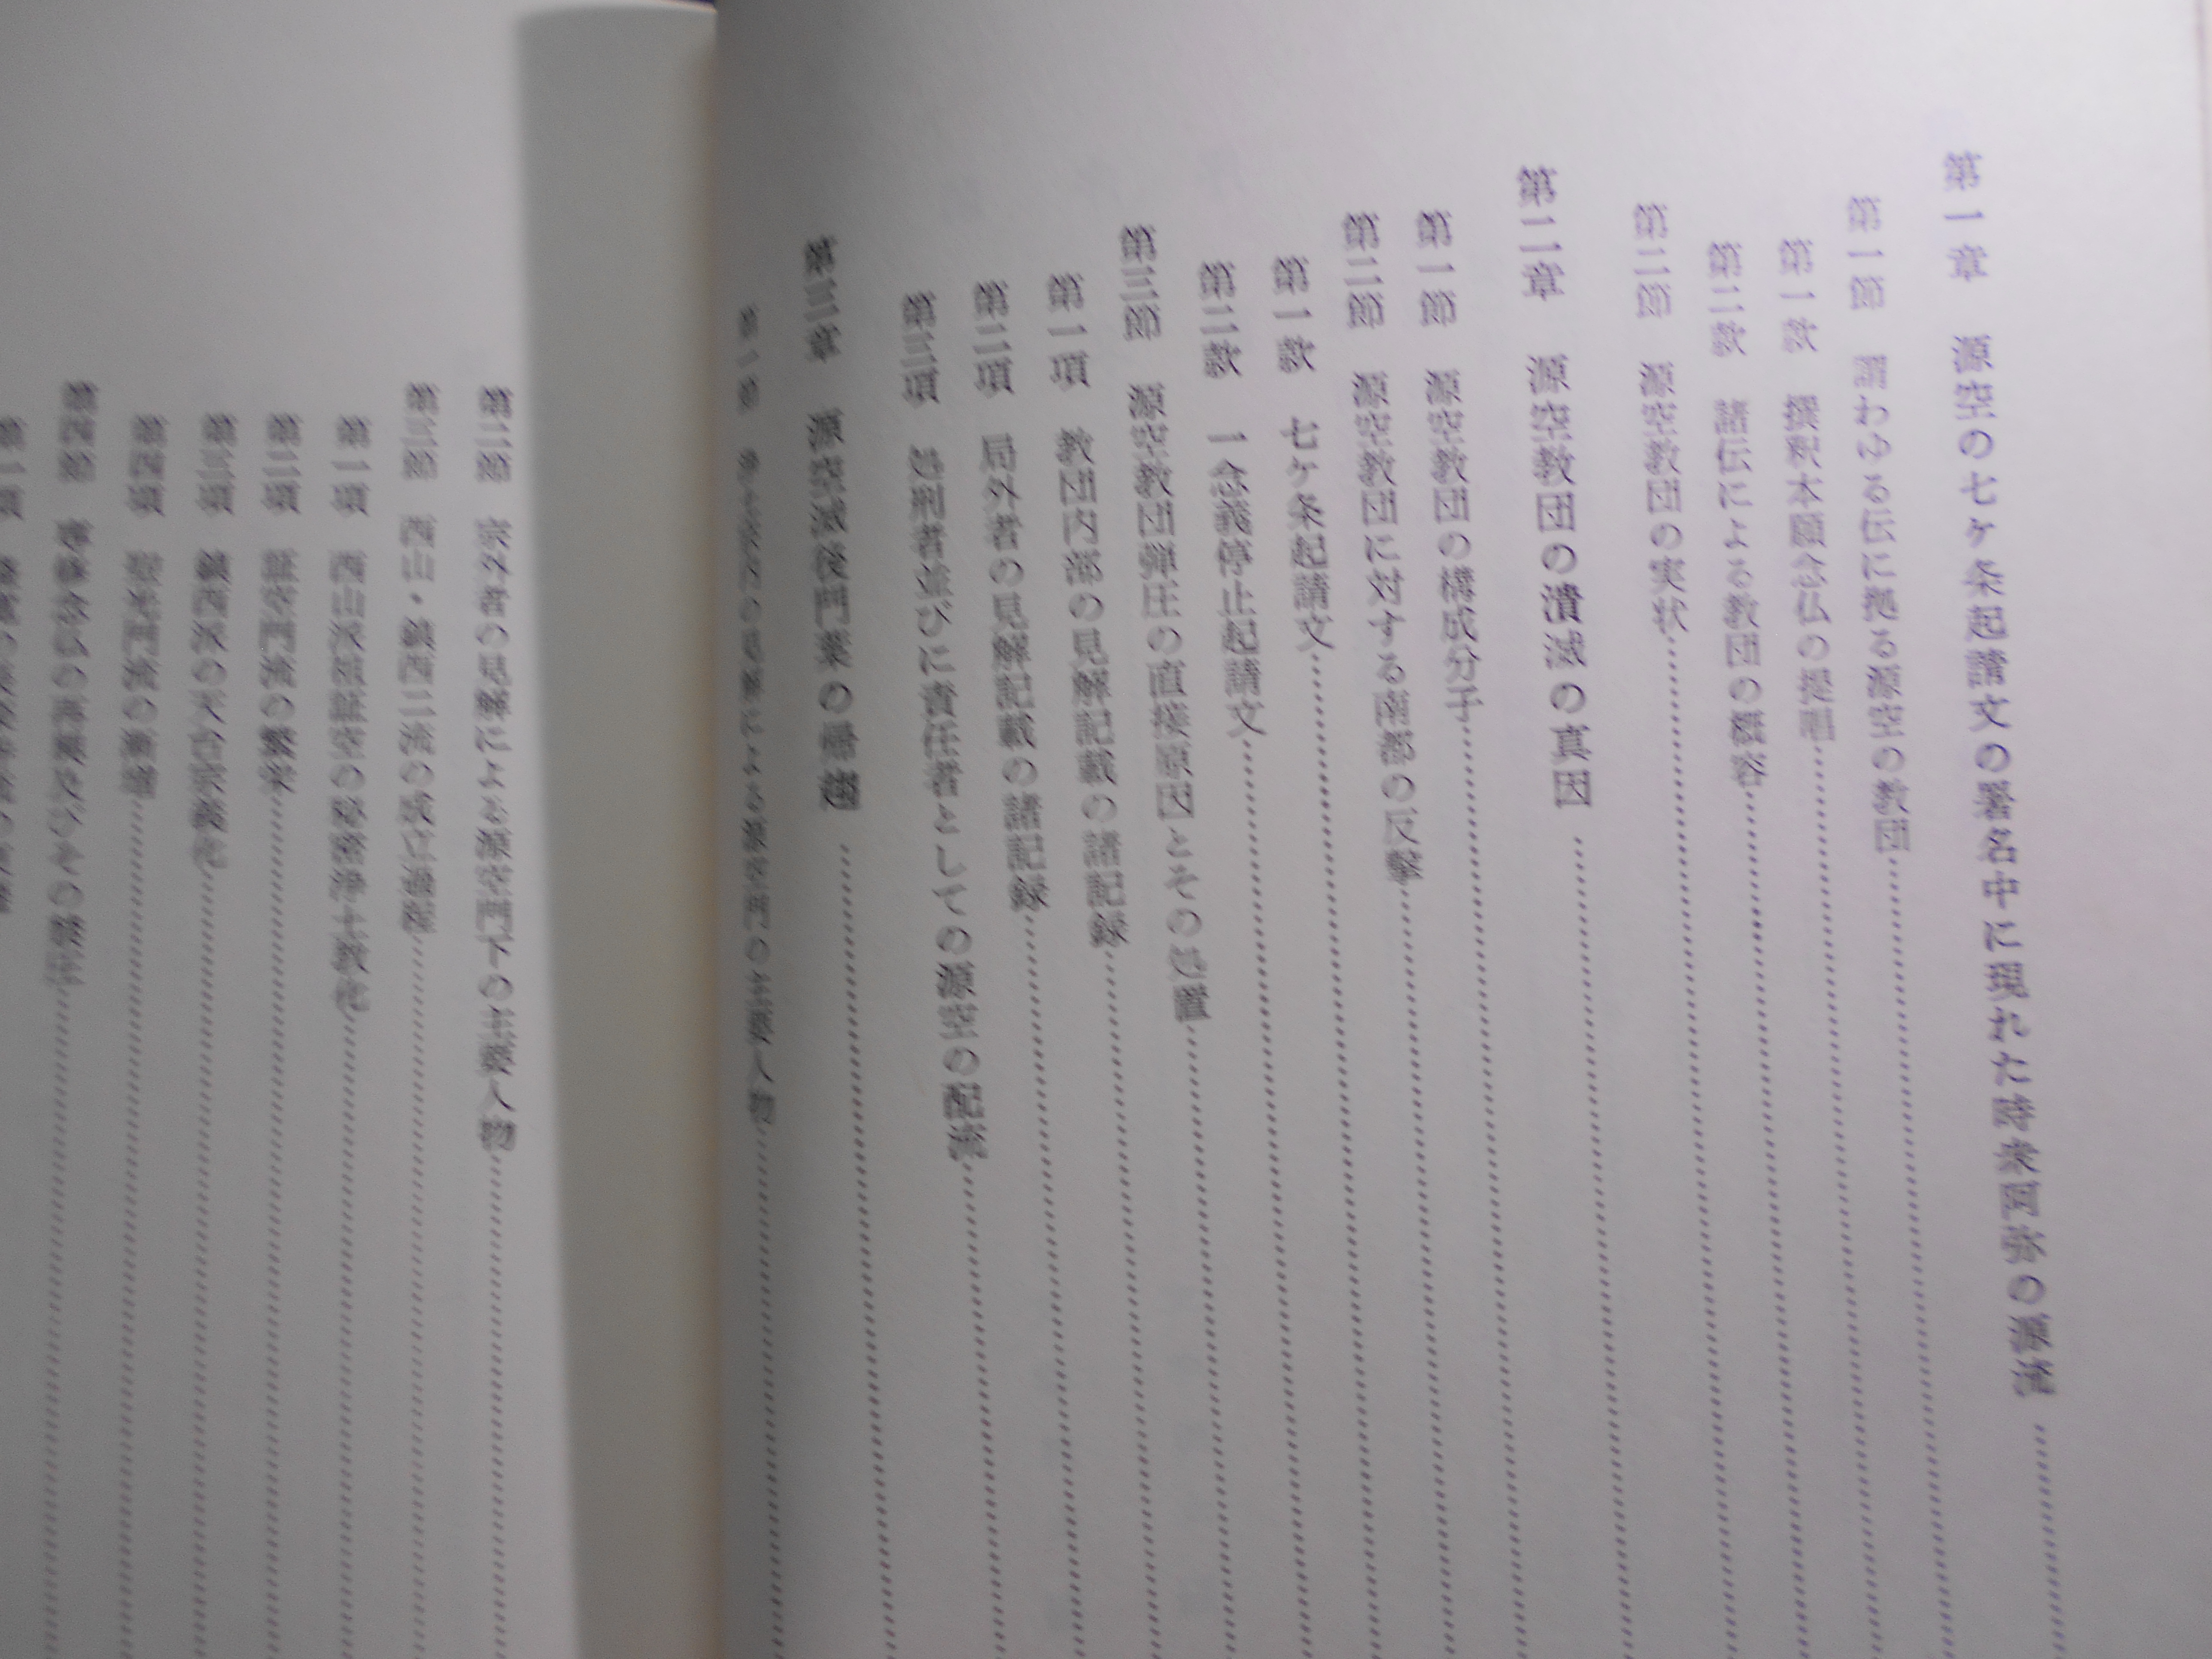 第一章 源空の七ケ条起請文の署名中に現れた時衆阿弥の源流
第一節 謂わゆる伝に拠る源空の教団
第一款 撰釈本願念仏の提唱
第二款 諸伝による教団の概容
第二節 源空教団の実状
第二章 源空教団の潰滅の真因
第一節 源空教団の構成分子
第二節 源空教団に対する南都の反撃
第一款 七ケ条起請文
第二款 一念義停止起請文
第三節 源空教団弾圧の直接原因とその処置
第一項 教団内部の見解記載の諸記録
第二項 局外者の見解記載の諸記録
第三項 処刑者並びに責任者としての源空の配流
第三章 源空滅後門葉の
第一節 浄土宗内の見解による源空門の主要人物
第二節 宗外者の見解による源空門下の主要人物
第三節 西山・鎮西二流の成立過程
第一項 西山派祖証空の秘密浄土教化
第二項 証空門流の繁栄
第三項 鎮西派の天台宗義化
第四項 門流の
第四節 念仏の再興及びその
第一項